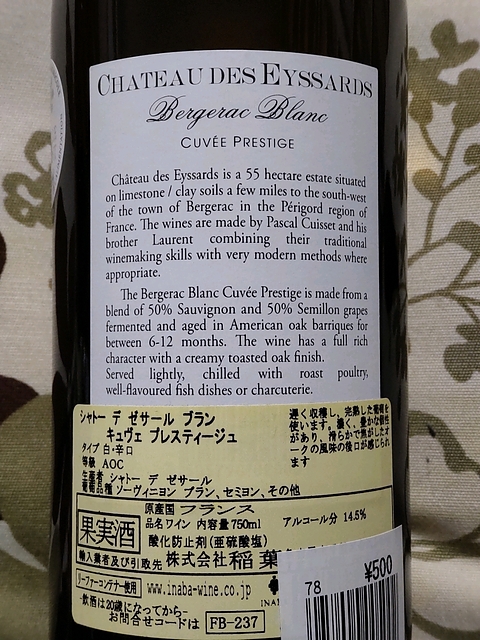 CHATEAU DES EYSSARDS
Bergerac Blanc
CUVÉE PRESTIGE
Château des Eyssards is a 55 hectare estate situated
on limestone / clay soils a few miles to the south-west
of the town of Bergerac in the Périgord region of
France. The wines are made by Pascal Cuisset and his
brother Laurent combining their traditional
winemaking skills with very modern methods where
appropriate.
The Bergerac Blanc Cuvée Prestige is made from a
blend of 50% Sauvignon and 50% Semillon grapes
fermented and aged in American oak barriques for
between 6-12 months. The wine has a full rich
character with a creamy toasted oak finish.
Served lightly, chilled with roast poultry,
well-flavoured fish dishes or charcuterie.
シャトー デ ゼサール ブラン
キュヴェ プレスティージュ
タイプ 白・辛口
等級 AOC
生産者 シャトー デ ゼサール
葡萄品種 ソーヴィニヨン ブラン、セミヨン、その他
遅く収穫し、完熟した葡萄を
使います。濃く、豊かな個性
があり、滑らかで焦がしたオ
ークの風味の後口が感じられ
ます
果実酒
原産国 フランス
品名 ワイン 内容量 750ml アルコール分 14.5%
酸化防止剤(亜硫酸塩)
輸入業者及び引取先 株式会社 稲葉
リーファーコンテナー使用 www.inaba-wine.co.jp
-飲酒は20歳になってから-
お問合せコードは FB-237
INA
78 ¥500